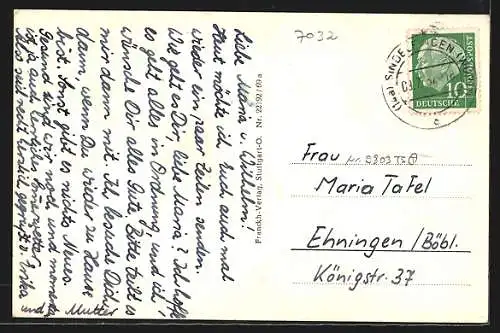 Liebe Maria u. Wilhelm!
Heut möchte ich Euch auch mal
wieder ein paar Zeilen senden.
Wie geht es Dir, liebe Maria? Ich hoffe
es geht alles in Ordnung, und ich
wünsche Dir alles Gute. Bitte teilt es
mir dann mit. Ich besuche Dich,
dann, wenn Du wieder zu Hause
bist. Sonst gibt es nichts Neues.
Gesund sind wir noch und momentan
ist ja auch
Also seit recht herzlich gegrüßt v. Erika
und Mutter
Franckh-Verlag, Stuttgart-O. Nr. 2292/69a
7032
SINDELFINGEN
(14a)
c
DEUTSCHE
BUNDESPOST
10
Frau
Maria Tafel
Ehningen /Böbl.
Königstr. 37